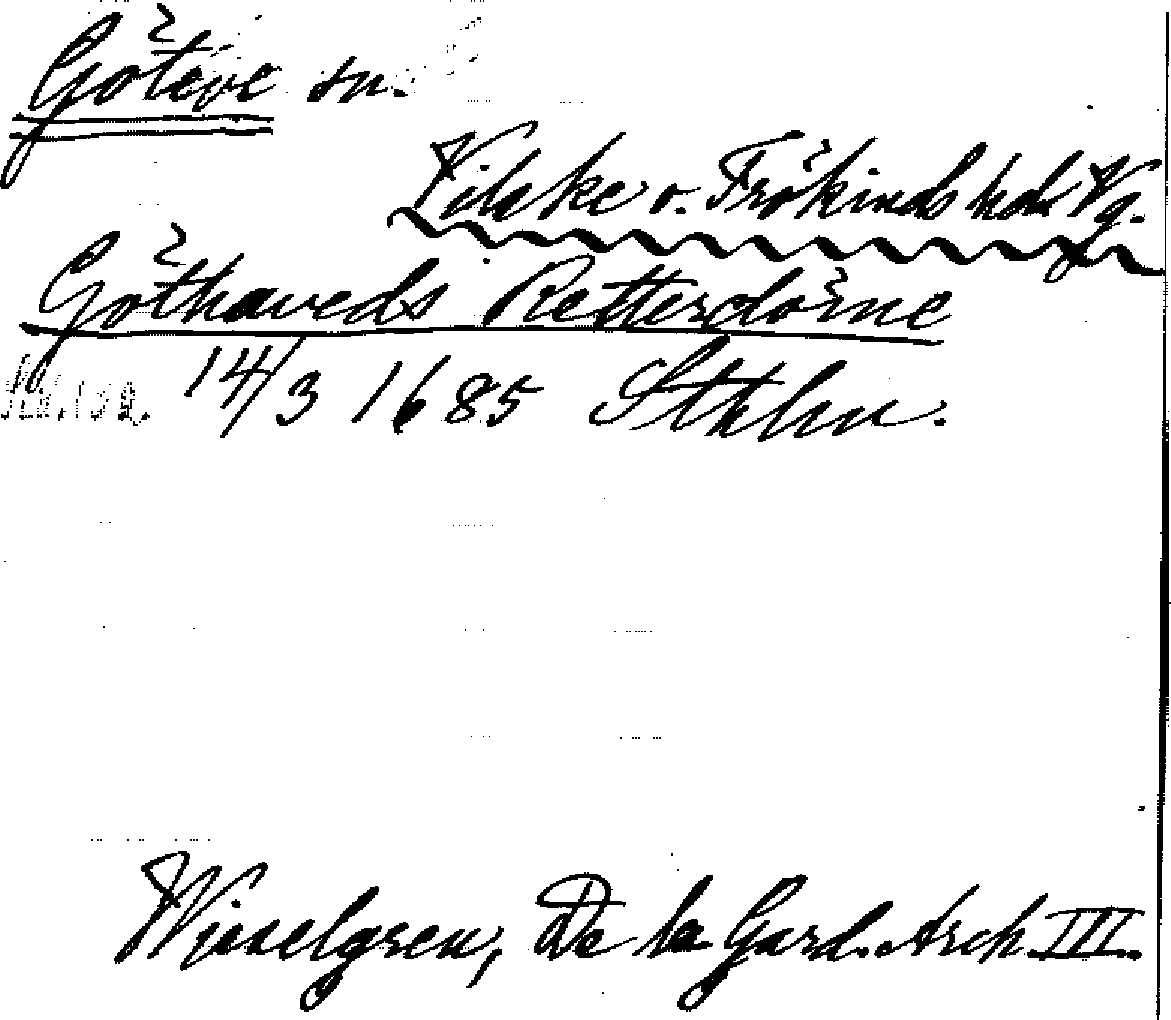 Göteve sn.
Vilske o. Frökinds hd. Vg.
Göthaveds Retterdörne
14/3 1685 Sthlm.
Wieselgren, De la Gard. Arch. III.